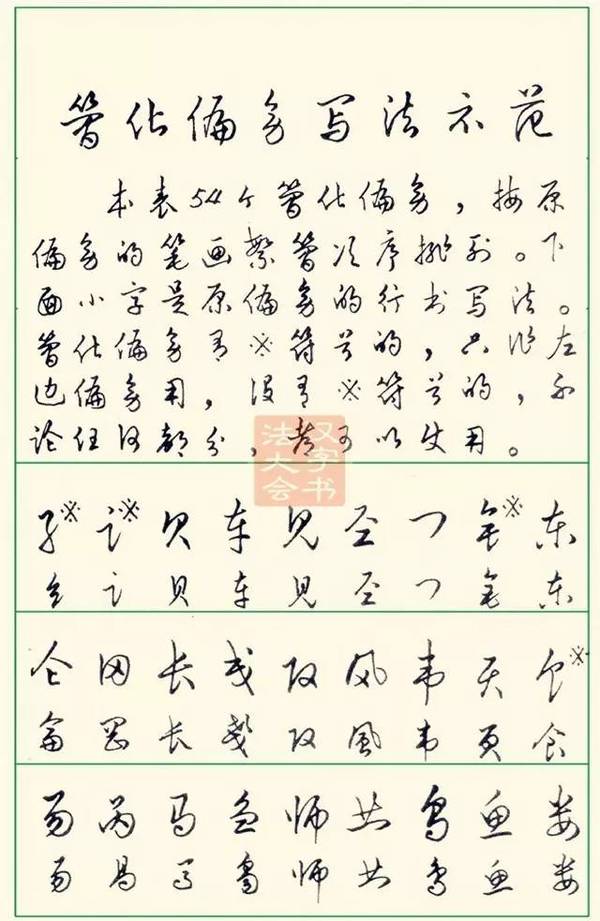 简化偏旁写法示范
本表54个简化偏旁，按原
偏旁的笔画繁简次序排列。下
面小字是原偏旁的行书写法。
简化偏旁有※符号的，只作左
边偏旁用，没有※符号的，不
论任何部分，都可以使用。
汉字书
法大会
纟※ 讠※ 贝 车 见 门 钅※ 东
讠 贝 车 见 门 东
仑 冈 长 戋 风 韦 页 饣※
长 風 韦 页 食
呙 马 刍 师 鸟 鱼 娄
师 鱼 娄